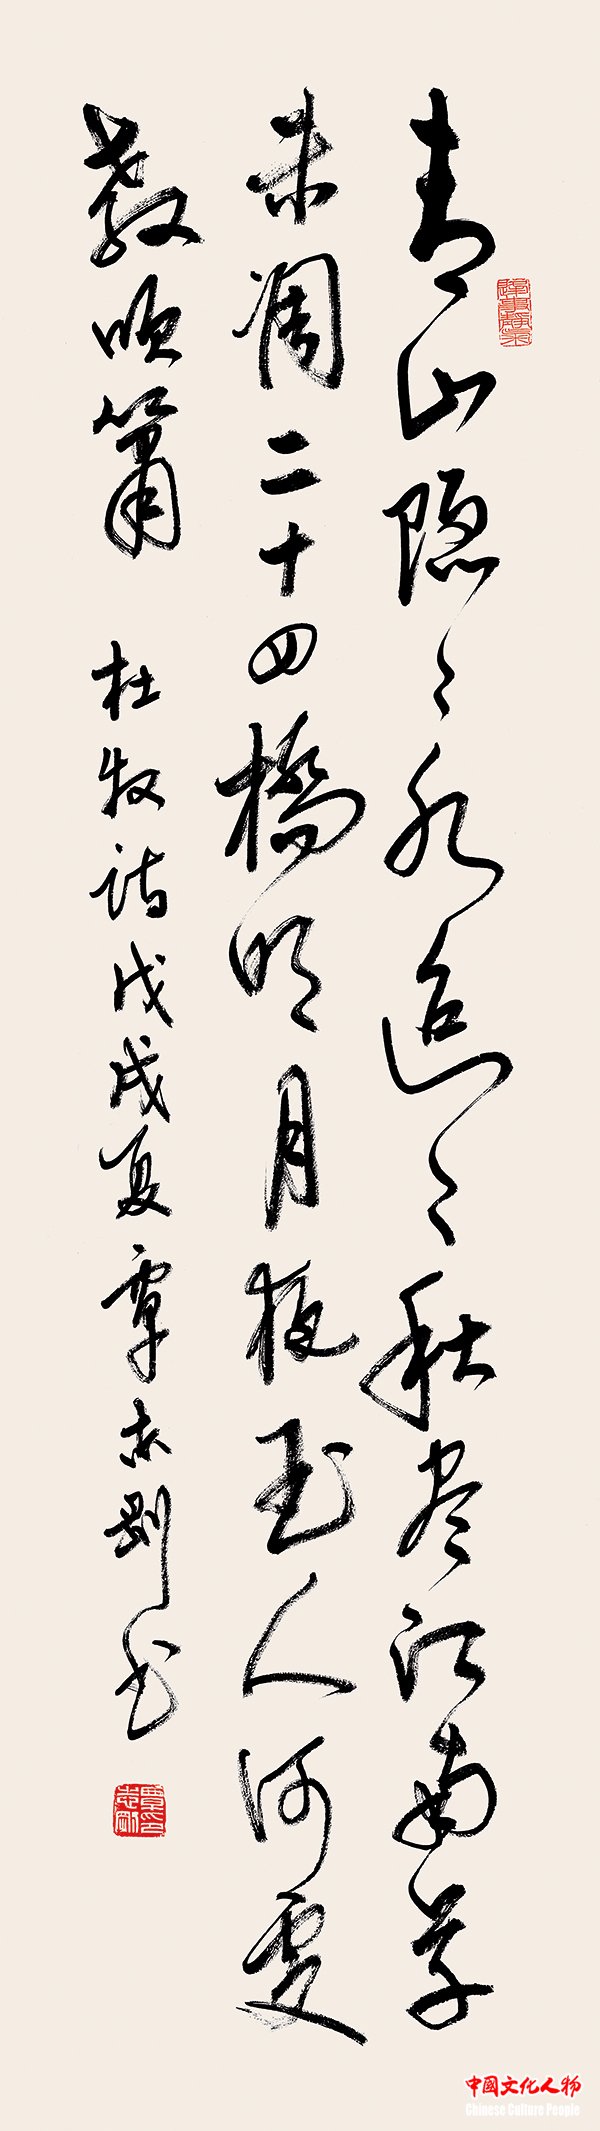 青山隐々水迢々秋尽江南草
未凋二十四橋明月夜玉人何處
教吹簫
杜牧诗戊戌夏覃志剛书
覃印志剛
中國文化人物
Chinese Culture People